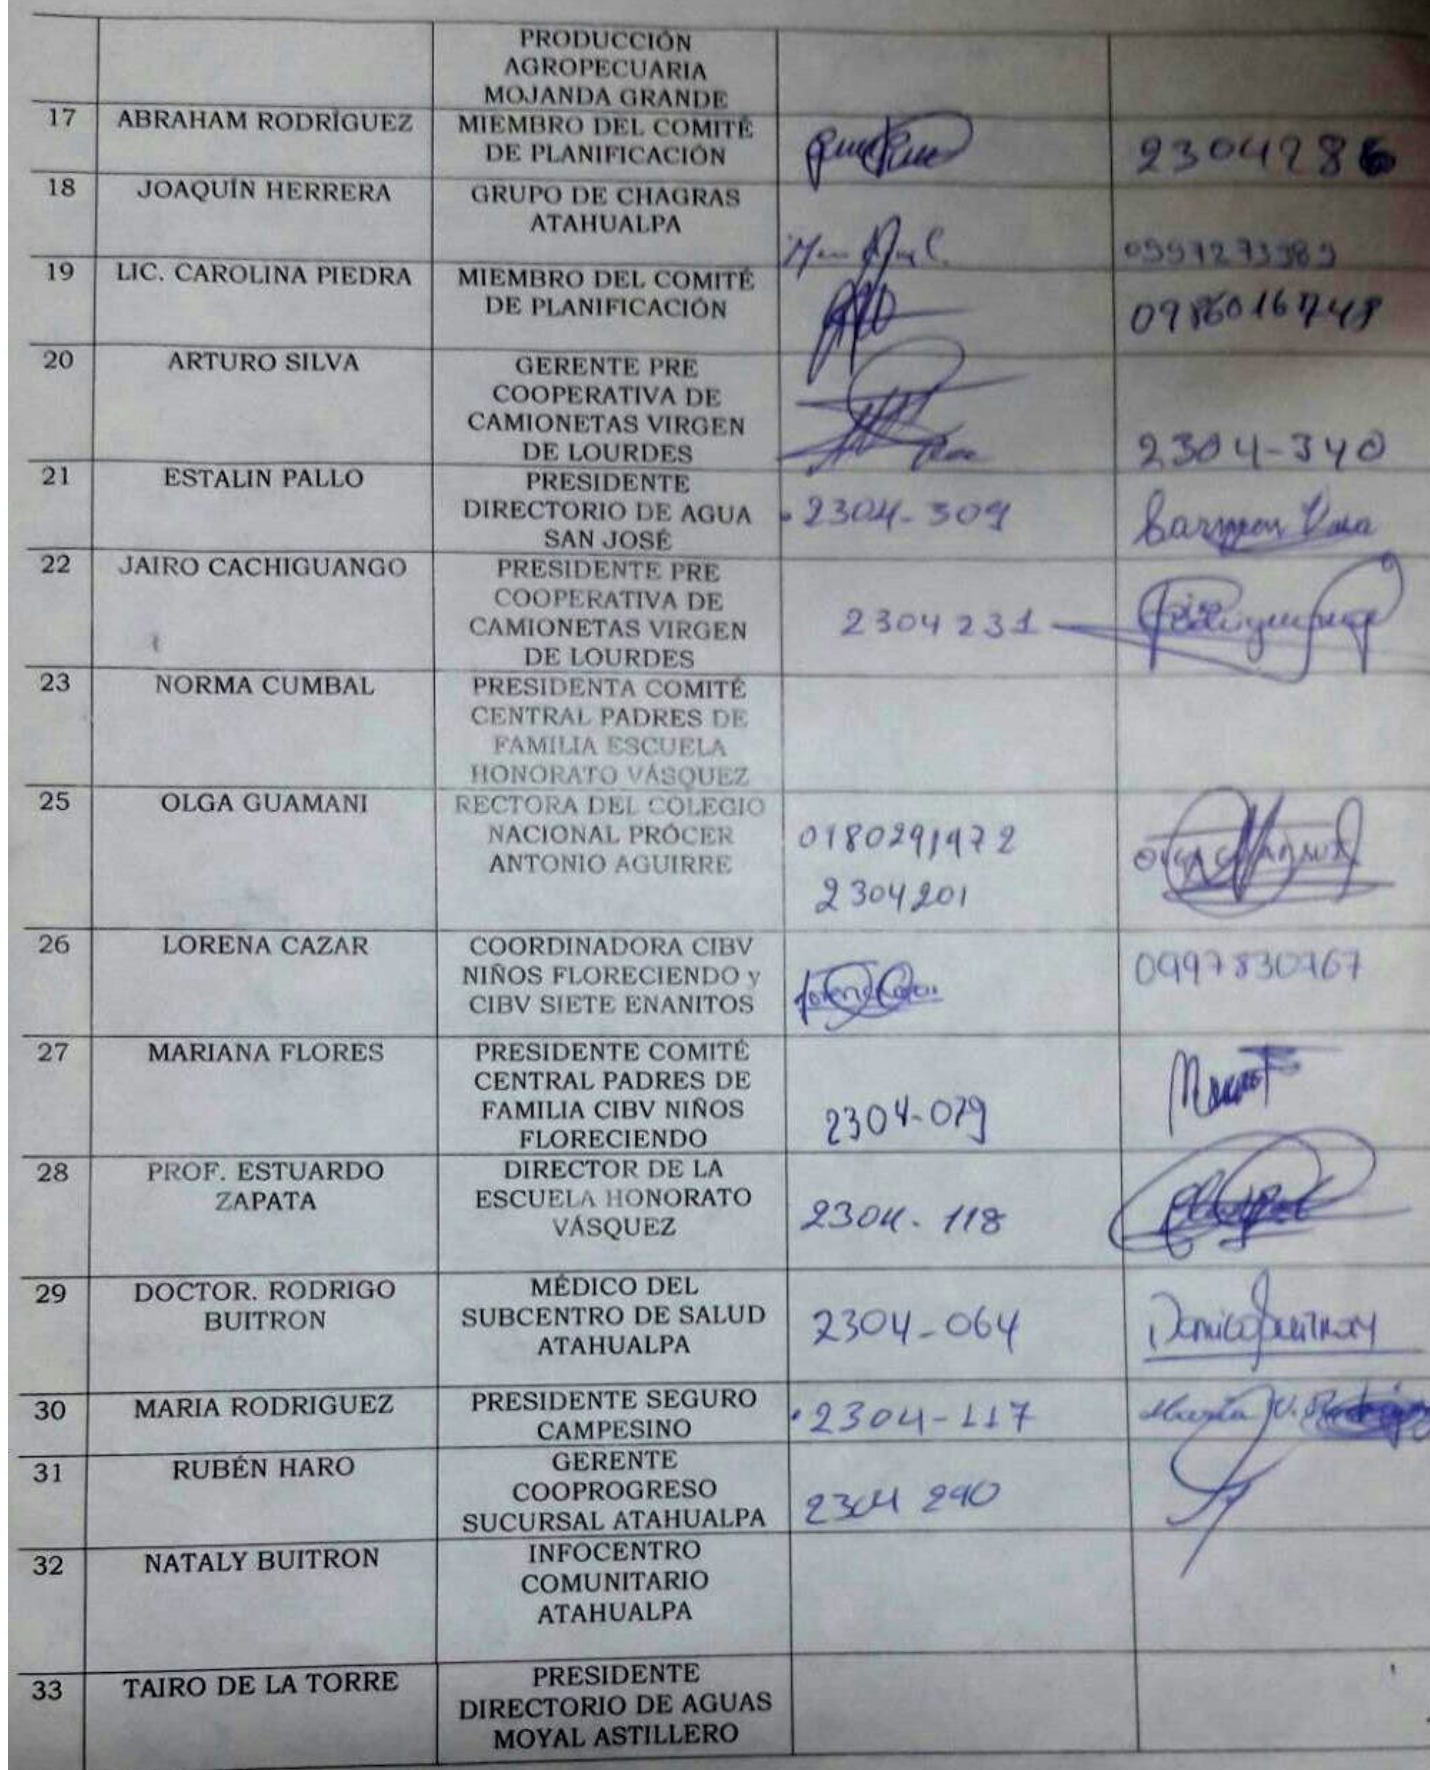 PRODUCCIÓN
AGROPECUARIA
MOJANDA GRANDE
17 ABRAHAM RODRÍGUEZ MIEMBRO DEL COMITÉ
DE PLANIFICACIÓN
2304286
18 JOAQUÍN HERRERA GRUPO DE CHAGRAS
ATAHUALPA
0997273989
19 LIC. CAROLINA PIEDRA MIEMBRO DEL COMITÉ
DE PLANIFICACIÓN
20 ARTURO SILVA GERENTE PRE
COOPERATIVA DE
CAMIONETAS VIRGEN
DE LOURDES
2304-340
21 ESTALIN PALLO PRESIDENTE
DIRECTORIO DE AGUA
SAN JOSÉ
2304-309
22 JAIRO CACHIGUANGO PRESIDENTE PRE
COOPERATIVA DE
CAMIONETAS VIRGEN
DE LOURDES
2304231
23 NORMA CUMBAL PRESIDENTA COMITÉ
CENTRAL PADRES DE
FAMILIA ESCUELA
HONORATO VÁSQUEZ
25 OLGA GUAMANI RECTORA DEL COLEGIO
NACIONAL PRÓCER
ANTONIO AGUIRRE
2304201
26 LORENA CAZAR COORDINADORA CIBV
NIÑOS FLORECIENDO y
CIBV SIETE ENANITOS
0997830767
27 MARIANA FLORES PRESIDENTE COMITÉ
CENTRAL PADRES DE
FAMILIA CIBV NIÑOS
FLORECIENDO
2304-079
28 PROF. ESTUARDO
ZAPATA
DIRECTOR DE LA
ESCUELA HONORATO
VÁSQUEZ
2304-118
29 DOCTOR. RODRIGO
BUITRON
MÉDICO DEL
SUBCENTRO DE SALUD
ATAHUALPA
2304-064
30 MARIA RODRIGUEZ PRESIDENTE SEGURO
CAMPESINO
2304-117
31 RUBÉN HARO GERENTE
COOPROGRESO
SUCURSAL ATAHUALPA
2304 290
32 NATALY BUITRON INFOCENTRO
COMUNITARIO
ATAHUALPA
33 TAIRO DE LA TORRE PRESIDENTE
DIRECTORIO DE AGUAS
MOYAL ASTILLERO